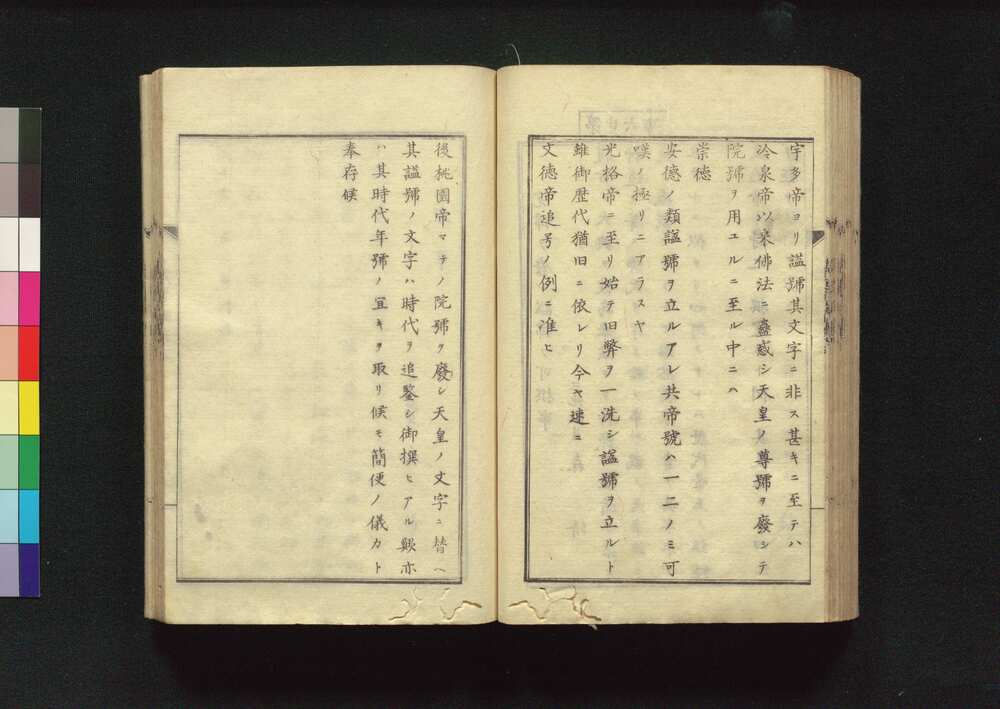 宇多帝ヨリ謚號其文字ニ非ス甚キニ至テハ
冷泉帝以来佛法ニ蠱惑シ天皇ノ尊號ヲ廢シテ
院號ヲ用ユルニ至ル中ニハ
崇德
安德ノ類謚號ヲ立ルアレ共帝號ハ一二ノミ可
嘆ノ極リニアラスヤ
光格帝ニ至リ始テ旧弊ヲ一洗シ謚號ヲ立ルト
雖御歴代猶旧ニ依レリ今ヤ速ニ
文德帝追号ノ例ニ准ヒ
後桃園帝マテノ院號ヲ廢シ天皇ノ文字ニ替ヘ
其謚號ノ文字ハ時代ヲ追鑒シ御撰ヒアル歟亦
ハ其時代年號ノ宜キヲ取リ候モ簡便ノ儀カト
奉存候